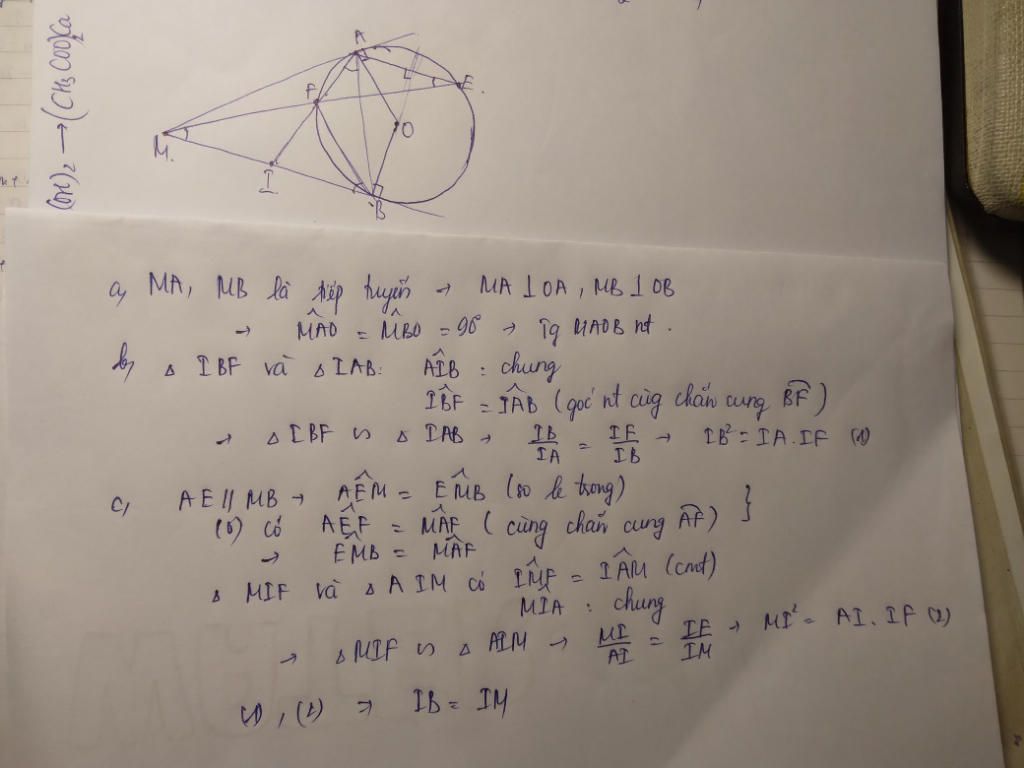 (OH)₂ → (CH₃COO)₂Ca
A
E
F
O
M
I
B
a, MA, MB là tiếp tuyến → MA ⊥ OA, MB ⊥ OB
→ M̂AO = M̂BO = 90° → Tg MAOB nt.
b, △ IBF và △ IAB: AÎB : chung
IB̂F = IÂB (góc nt cùng chắn cung B͡F)
→ △ IBF ∽ △ IAB → IB/IA = IF/IB → IB² = IA.IF (1)
c, AE // MB → AÊM = EM̂B (so le trong)
(O) có AÊF = MÂF (cùng chắn cung A͡F) }
→ EM̂B = MÂF
△ MIF và △ AIM có IM̂F = IÂM (cmt)
MÎA : chung
→ △ MIF ∽ △ AIM → MI/AI = IF/IM → MI² = AI.IF (2)
(1), (2) ⇒ IB = IM